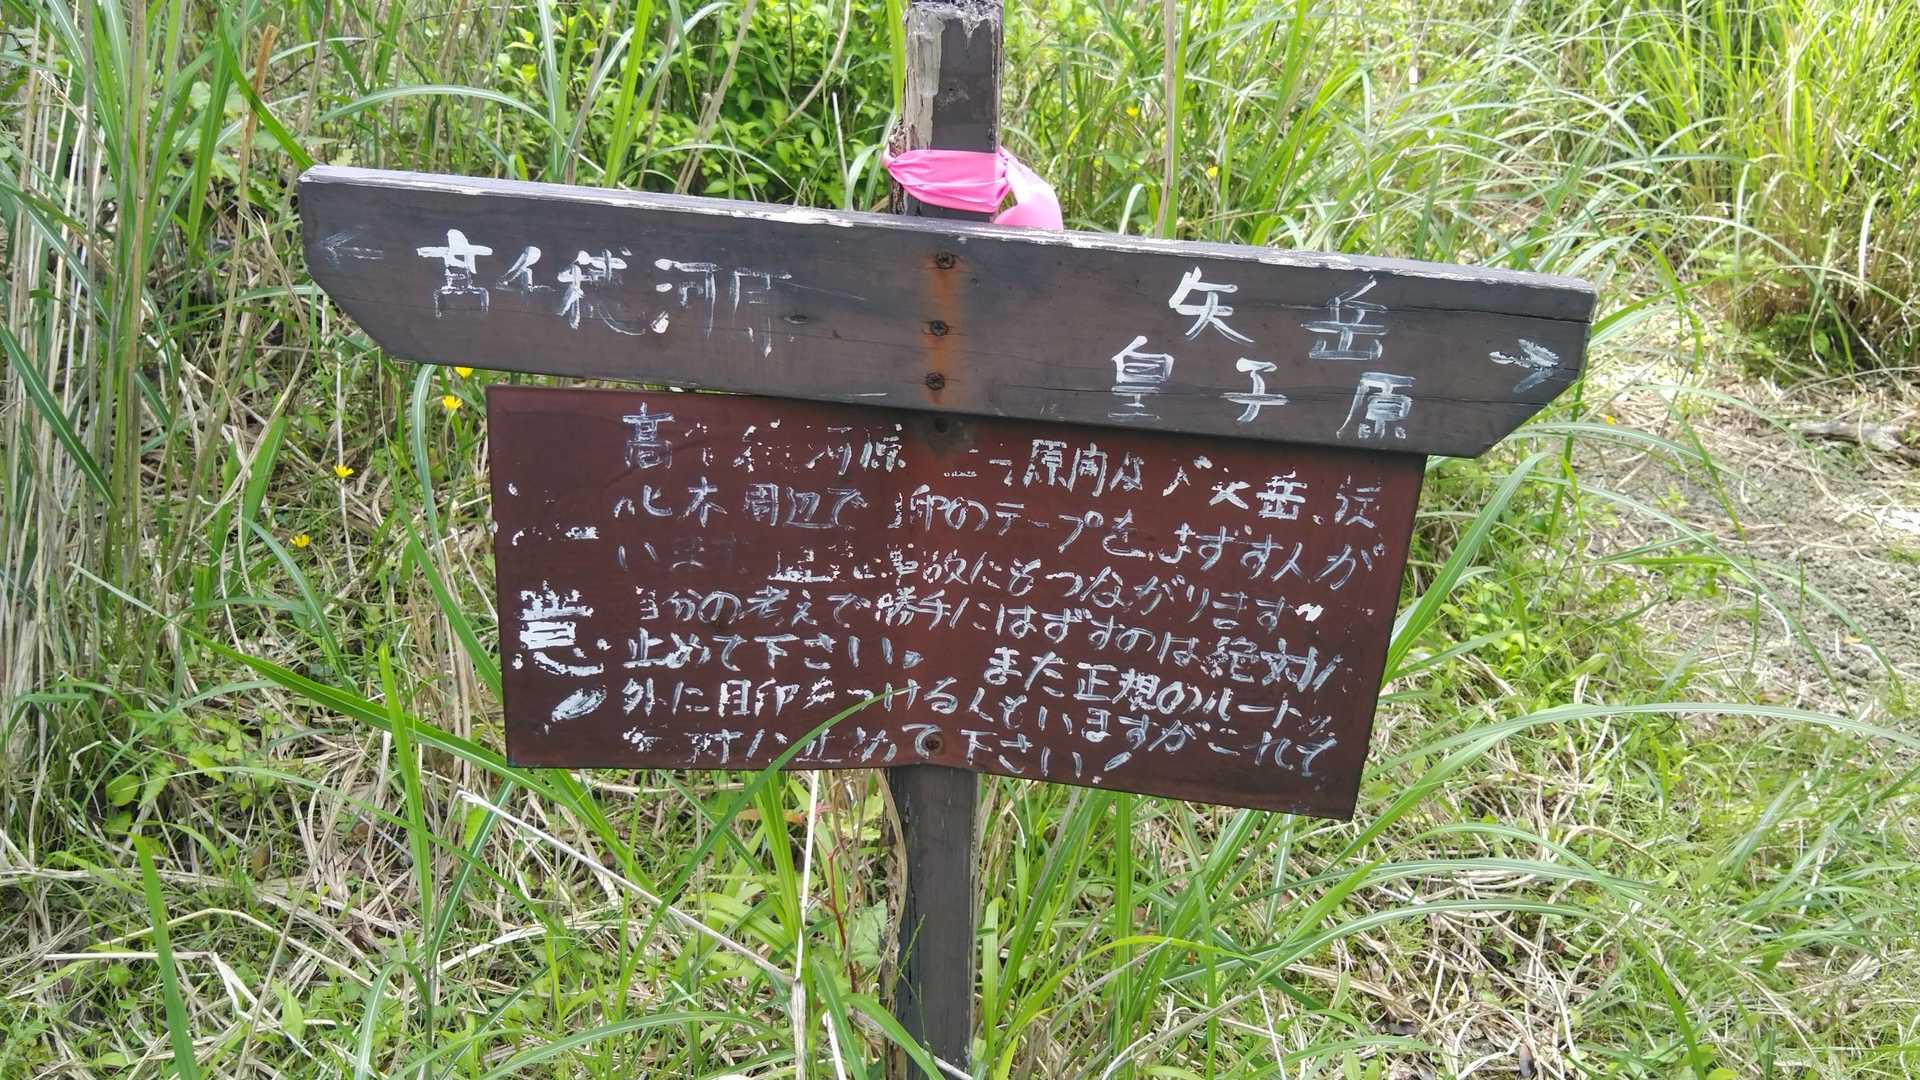 ← 高千穂河原
矢岳 →
皇子原
高千穂河原 原内及び 矢岳
木周辺で 印のテープをはずす人が
います 事故にもつながります
意 自分の考えで勝手にはずすのは絶対に
止めて下さい。 また正規のルート
外に目印をつける人もいますがこれも
絶対に止めて下さい